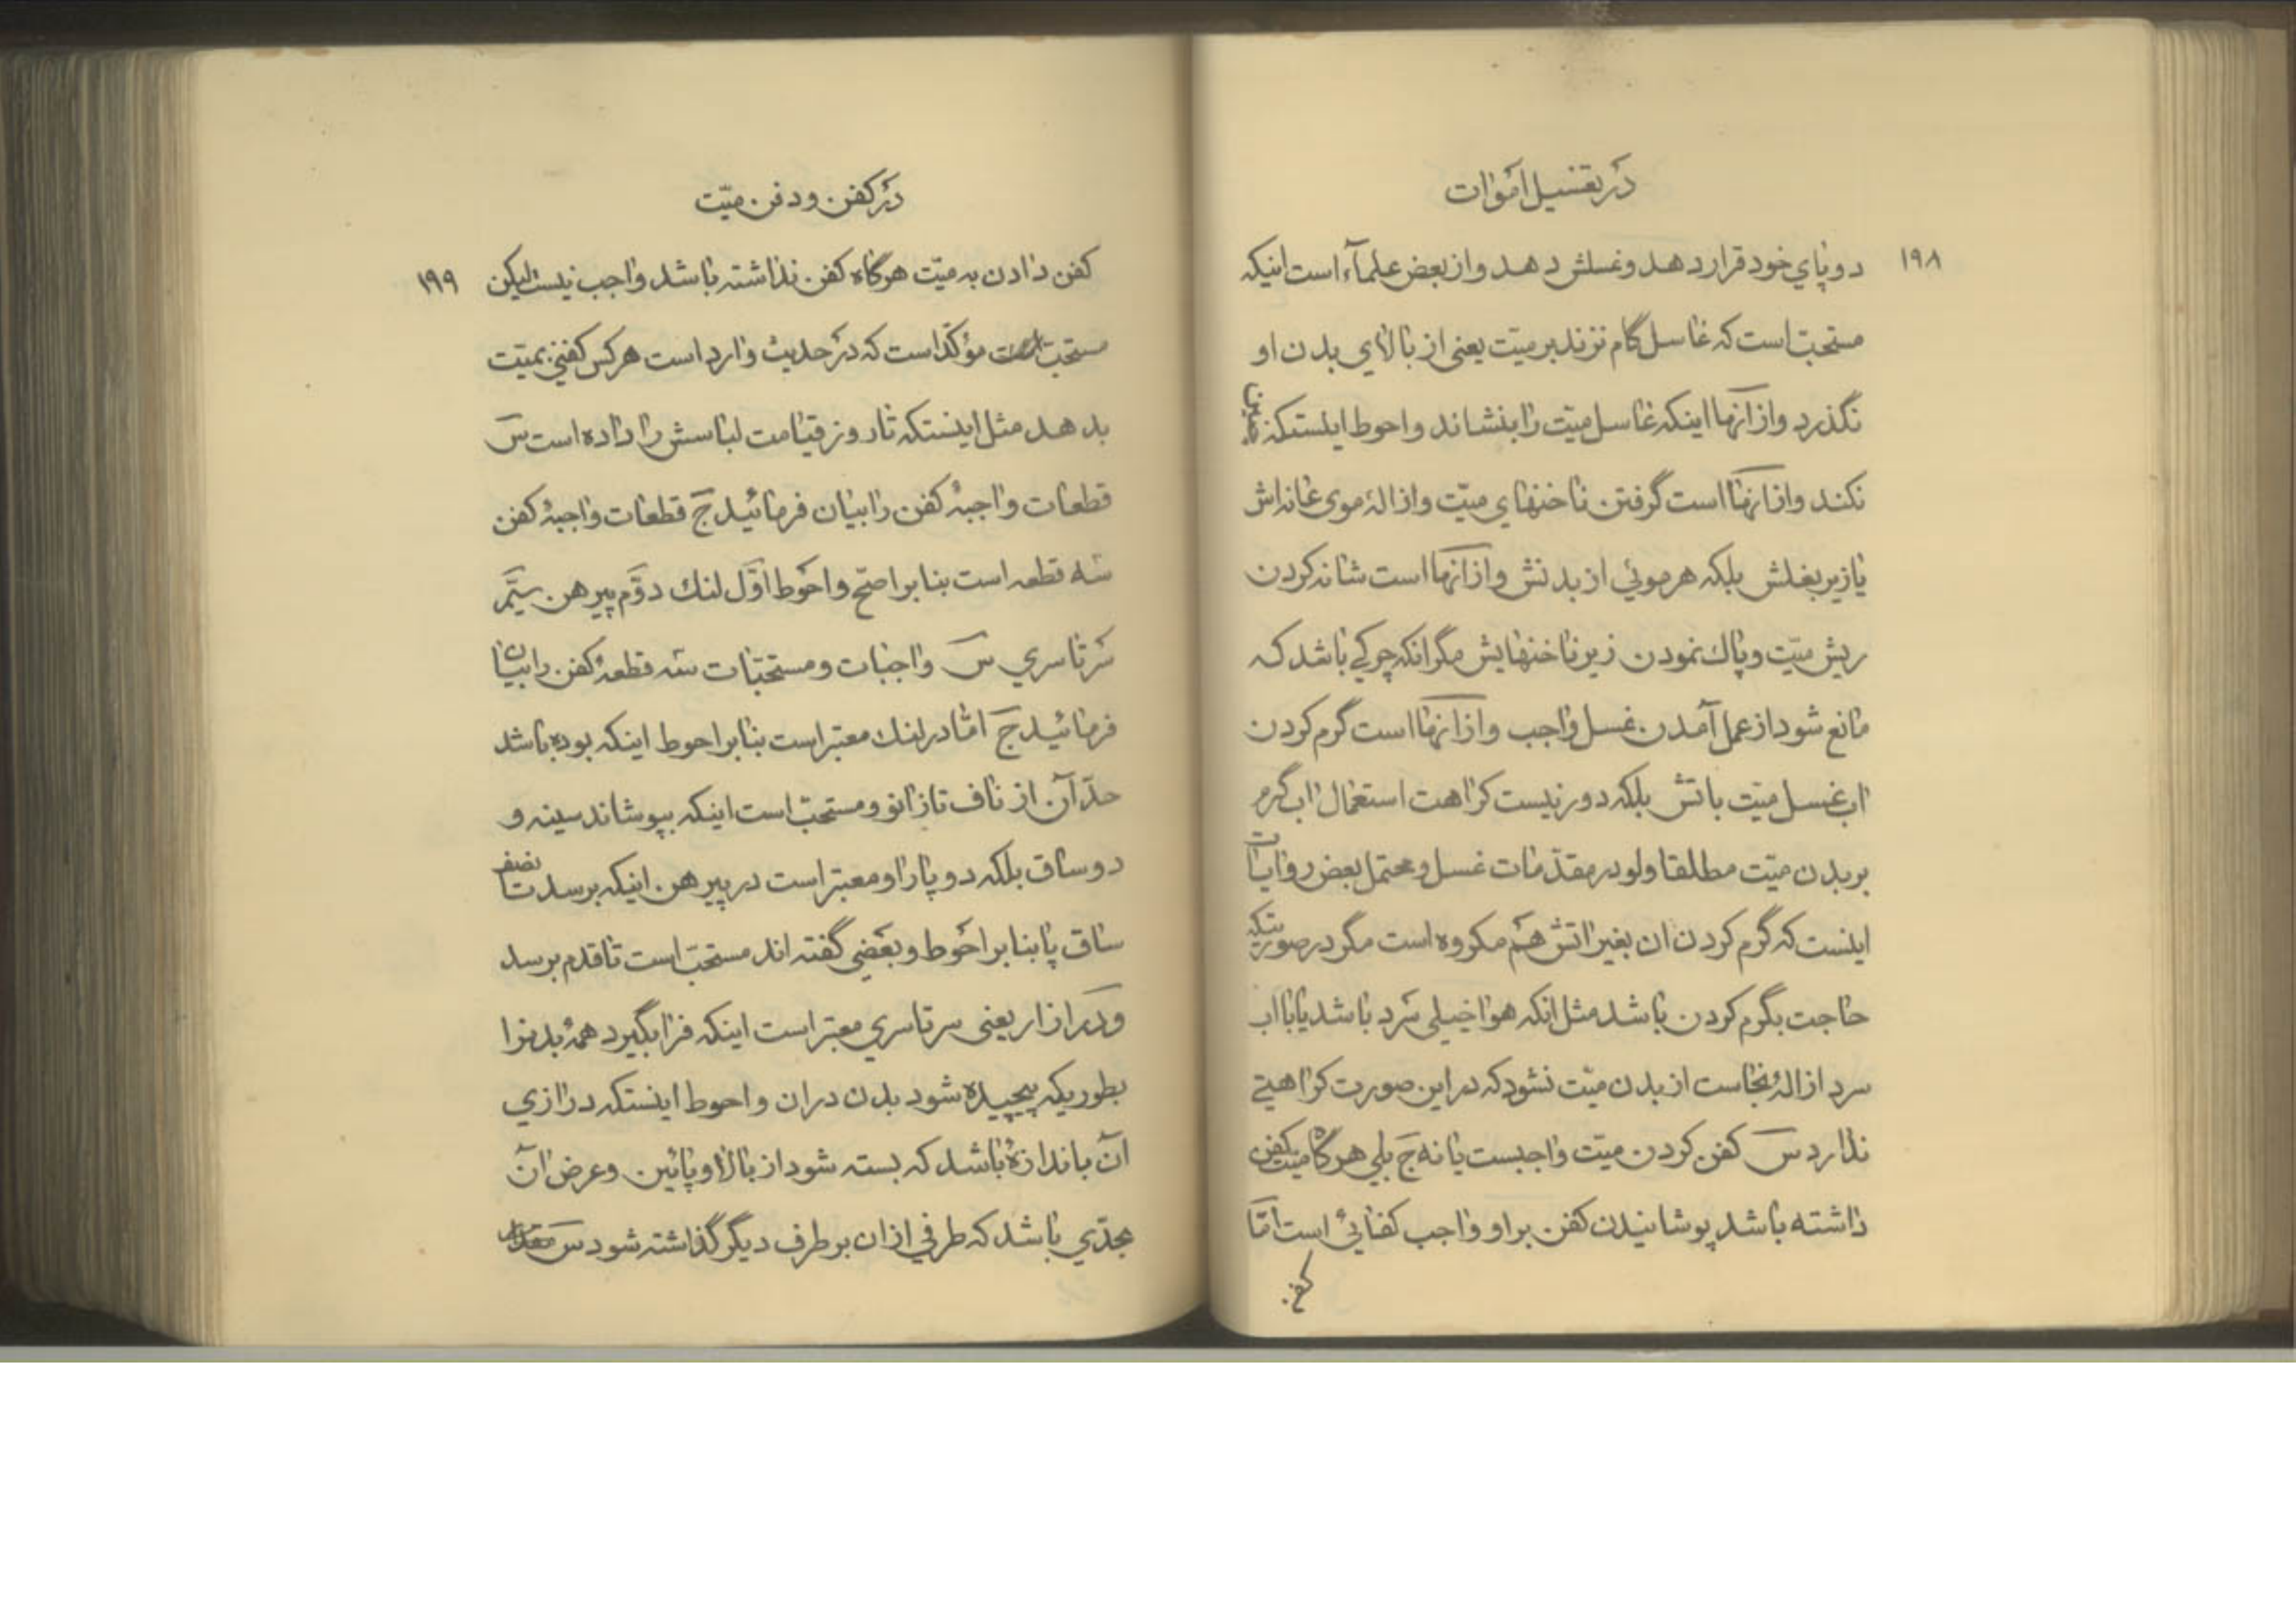 در تغسیل اموات
۱۹۸
دو پای خود قرار دهد و غسلش دهد و از بعض علمآء است اینکه
مستحبّ است که غاسل گام نزند بر میّت یعنی از بالای بدن او
نگذرد و از آنها اینکه غاسل میّت را بنشاند و احوط اینستکه چنین
نکند و از انها است گرفتن ناخنهای میّت و ازالهٔ موی عانه‌اش
یا زیر بغلش بلکه هر موئی از بدنش و از انها است شانه کردن
ریش میّت و پاك نمودن زیر ناخنهایش مگر انکه چرکی باشد که
مانع شود از عمل آمدن غسل واجب و از انها است گرم کردن
اب غسل میّت باتش بلکه دور نیست کراهت استعمال اب گرم
بر بدن میّت مطلقا ولو در مقدّمات غسل و محتمل بعض روایات
اینست که گرم کردن ان بغیر اتش هم مکروه است مگر در صورتیکه
حاجت بگرم کردن باشد مثل انکه هوا خیلی سرد باشد یا با اب
سرد ازالهٔ نجاست از بدن میّت نشود که در این صورت کراهیتی
ندارد سَ کفن کردن میّت واجبست یا نه جَ بلی هرگاه میّت کفن
داشته باشد پوشانیدن کفن بر او واجب کفائی است امّا
کفن
در کفن و دفن میّت
۱۹۹
کفن دادن به میّت هرگاه کفن نداشته باشد واجب نیست لیکن
مستحبّ مؤکّد است که در حدیث وارد است هر کس کفنی بمیّت
بدهد مثل اینستکه تا روز قیامت لباسش را داده است سَ
قطعات واجبهٔ کفن را بیان فرمائید جَ قطعات واجبهٔ کفن
سه قطعه است بنا بر اصحّ و احوط اوّل لنك دوّم پیرهن سیّم
سرتاسری سَ واجبات و مستحبّات سه قطعهٔ کفن را بیان
فرمائید جَ امّا در لنك معتبر است بنا بر احوط اینکه بوده باشد
حدّ آن از ناف تا زانو و مستحبّ است اینکه بپوشاند سینه و
دو ساق بلکه دو پا را و معتبر است در پیرهن اینکه برسد تا نصف
ساق پا بنا بر احوط و بعضی گفته اند مستحبّ است تا قدم برسد
و در ازار یعنی سرتاسری معتبر است اینکه فرا بگیرد همهٔ بدنرا
بطوریکه پیچیده شود بدن در ان و احوط اینستکه درازی
آن باندازهٔ باشد که بسته شود از بالا و پائین و عرض ان
بحدّی باشد که طرفی از ان بر طرف دیگر گذاشته شود سَ مقدار